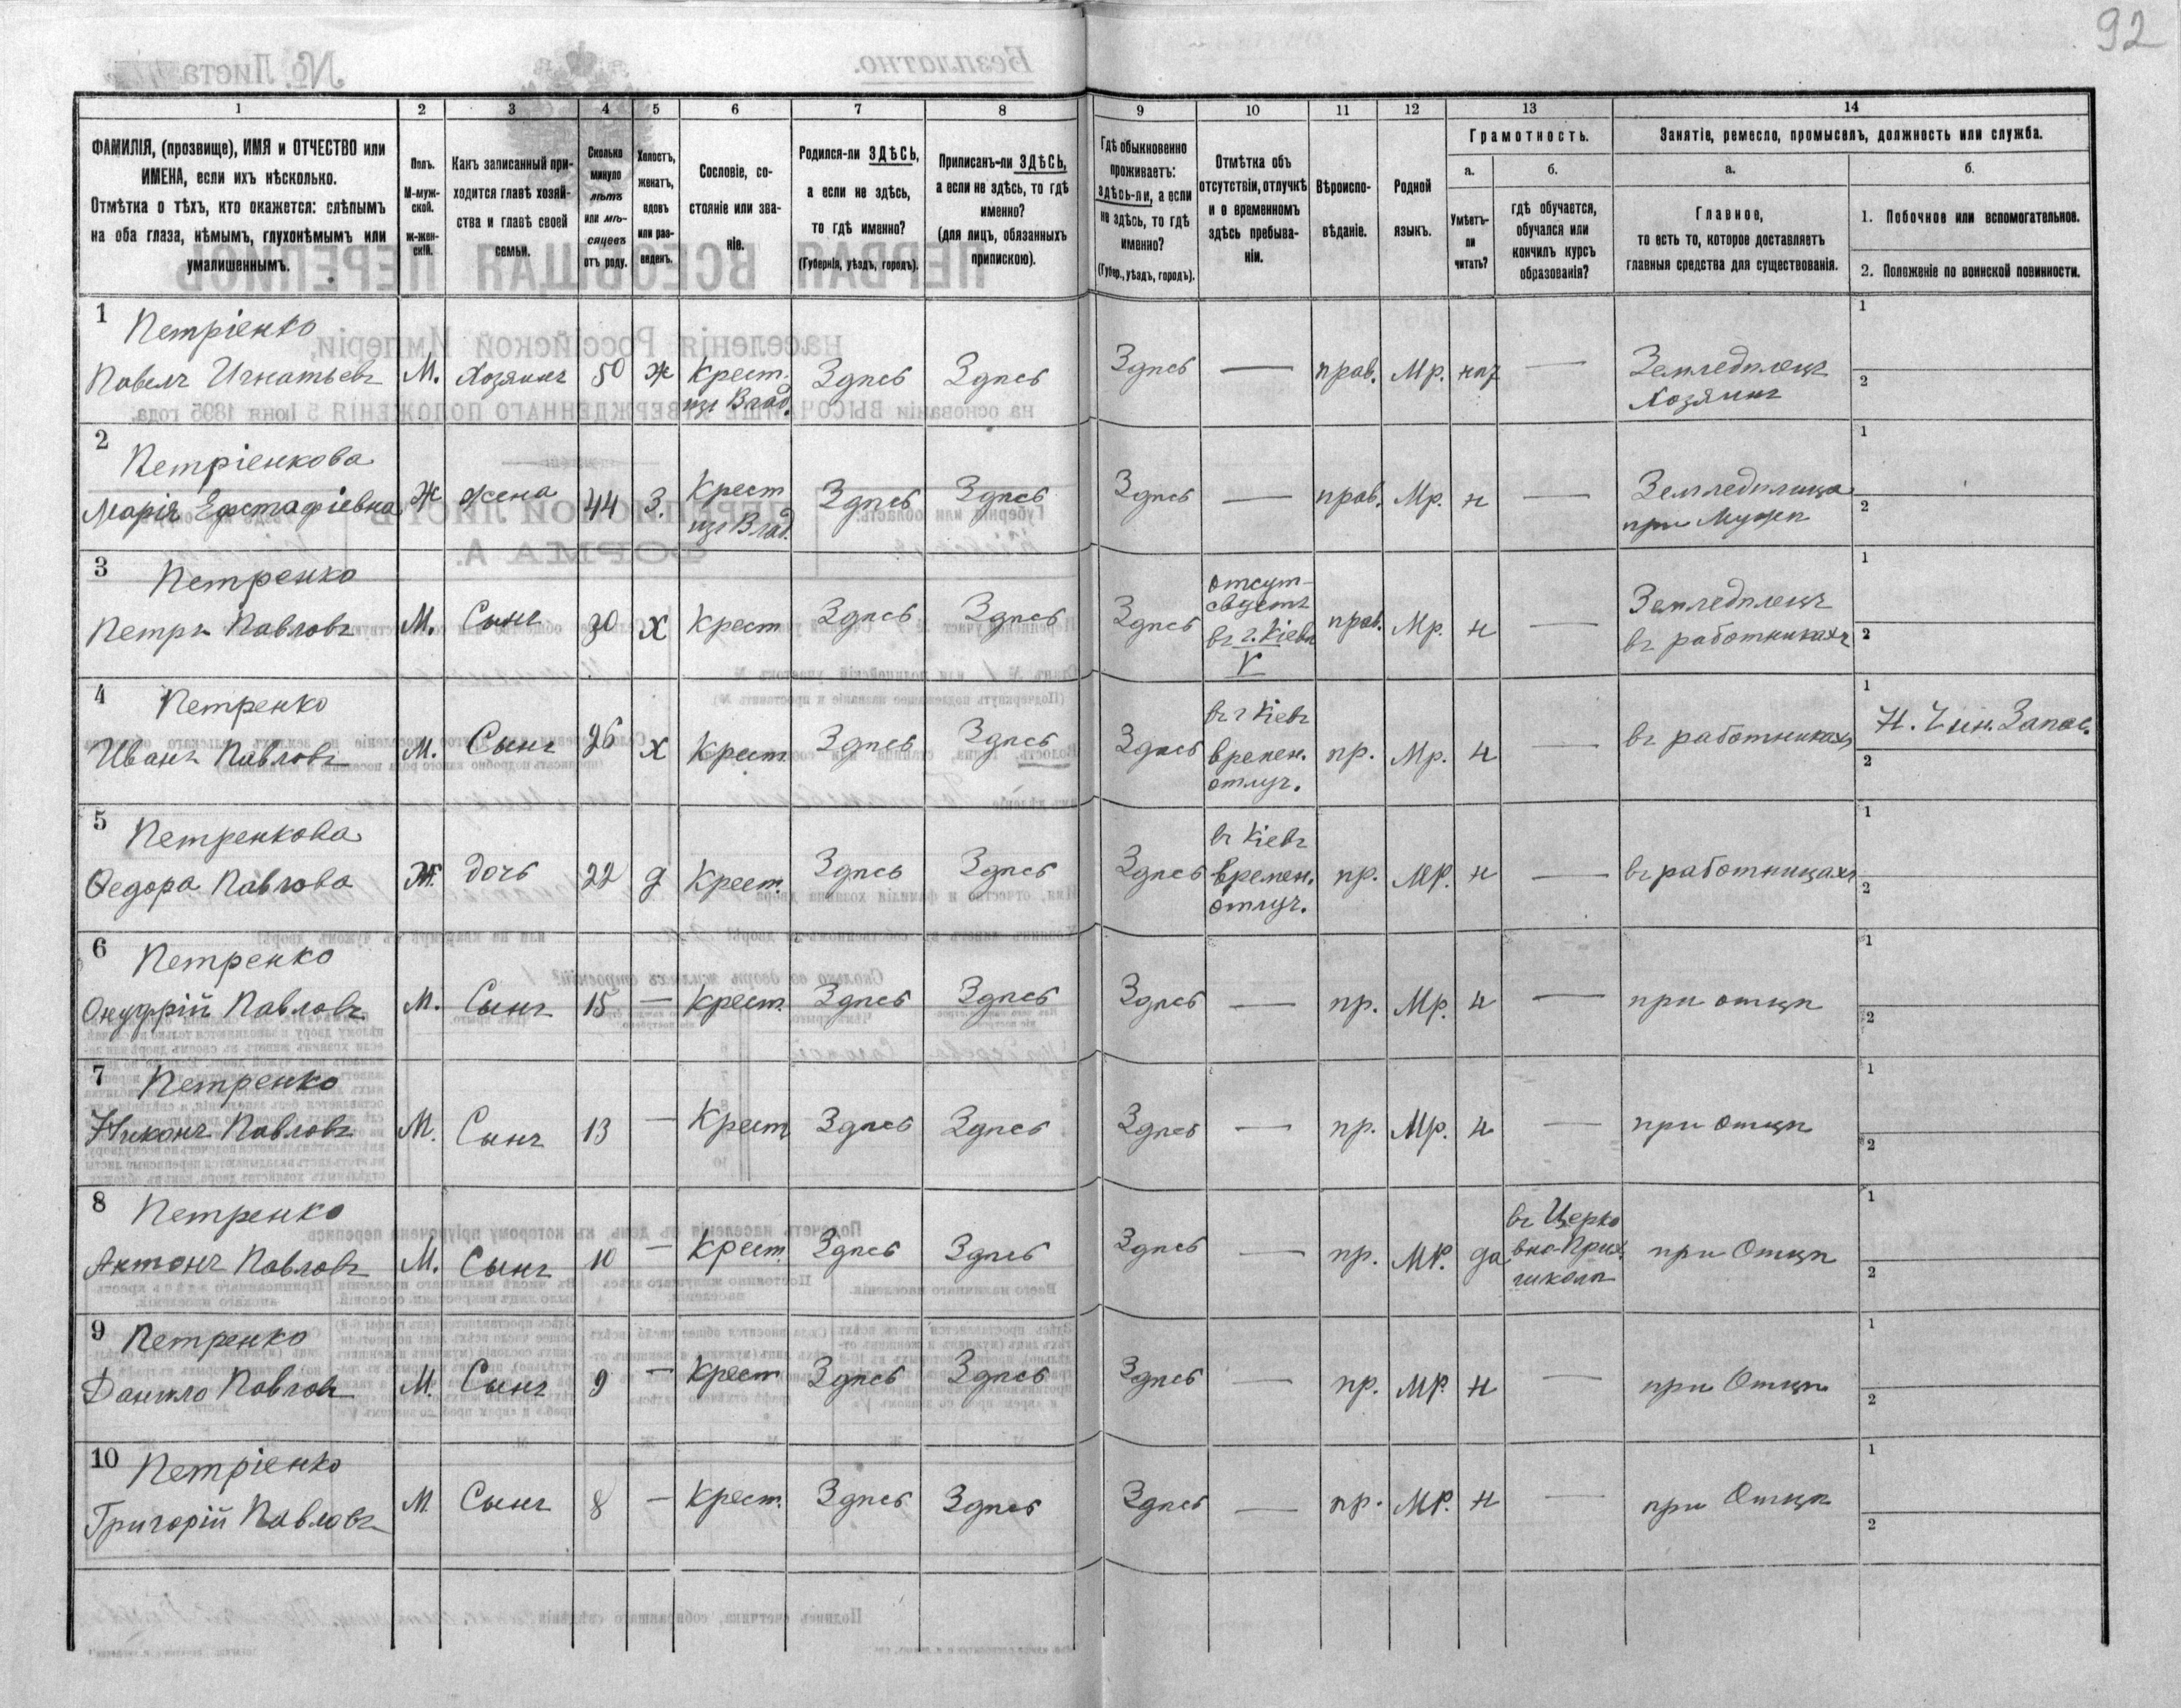 92
1 2 3 4 5 6 7 8 9 10 11 12 13 14
ФАМИЛІЯ, (прозвище), ИМЯ и ОТЧЕСТВО или
ИМЕНА, если ихъ нѣсколько.
Отмѣтка о тѣхъ, кто окажется: слѣпымъ
на оба глаза, нѣмымъ, глухонѣмымъ или
умалишеннымъ.
Полъ.
М-муж-
ской.
ж-жен-
скій.
Какъ записанный при-
ходится главѣ хозяй-
ства и главѣ своей
семьи.
Сколько
минуло
лѣтъ
или мѣ-
сяцевъ
отъ роду.
Холостъ,
женатъ,
вдовъ
или раз-
веденъ.
Сословіе, со-
стояніе или зва-
ніе.
Родился-ли ЗДѢСЬ,
а если не здѣсь,
то гдѣ именно?
(Губернія, уѣздъ, городъ).
Приписанъ-ли ЗДѢСЬ,
а если не здѣсь, то гдѣ
именно?
(для лицъ, обязанныхъ
припискою).
Гдѣ обыкновенно
проживаетъ:
здѣсь-ли, а если
не здѣсь, то гдѣ
именно?
(Губер., уѣздъ, городъ).
Отмѣтка объ
отсутствіи, отлучкѣ
и о временномъ
здѣсь пребыва-
ніи.
Вѣроиспо-
вѣданіе.
Родной
языкъ.
Грамотность.
а.
Умѣетъ-
ли
читать?
б.
гдѣ обучается,
обучался или
кончилъ курсъ
образованія?
Занятіе, ремесло, промыселъ, должность или служба.
а.
Главное,
то есть то, которое доставляетъ
главныя средства для существованія.
б.
1. Побочное или вспомогательное.
2. Положеніе по воинской повинности.
1 Петріенко
Павелъ Игнатьевъ М. Хозяинъ 50 ж Крест. Здѣсь Здѣсь Здѣсь — прав. Мр. нѣт — Земледѣлецъ
изъ Влад. Хозяинъ
2 Петріенкова
Марія Евстафіевна Ж жена 44 З. Крест Здѣсь Здѣсь Здѣсь — прав. Мр. н — Земледѣлица
изъ Влад. при Мужѣ
3 Петренко
отсут-
ствуетъ
Петръ Павловъ М. Сынъ 30 Х Крест Здѣсь Здѣсь Здѣсь въ г. Кіевѣ прав. Мр. н — Земледѣлецъ
V въ работникахъ
4 Петренко
въ г Кіевъ
Иванъ Павловъ М. Сынъ 26 Х Крест Здѣсь Здѣсь Здѣсь времен. пр. Мр. н — въ работникахъ Н. Чин. Запас.
отлуч.
5 Петренкова
въ Кіевъ
Ѳедора Павлова Ж. дочь 22 д Крест. Здѣсь Здѣсь Здѣсь времен. пр. МР. н — въ работницахъ
отлуч.
6 Петренко
Онуфрій Павловъ М. Сынъ 15 — Крест. Здѣсь Здѣсь Здѣсь — пр. Мр. н — при отцѣ
7 Петренко
Никонъ Павловъ М. Сынъ 13 — Крест Здѣсь Здѣсь Здѣсь — пр. Мр. н — при отцѣ
8 Петренко
въ Церко
Антонъ Павловъ М. Сынъ 10 — Крест. Здѣсь Здѣсь Здѣсь — пр. МР. да вно-Прих. при Отцѣ
школѣ
9 Петренко
Данило Павловъ М. Сынъ 9 — Крест Здѣсь Здѣсь Здѣсь — пр. МР. н — при Отцѣ
10 Петріенко
Григорій Павловъ М Сынъ 8 — Крест. Здѣсь Здѣсь Здѣсь — пр. МР. н — при Отцѣ